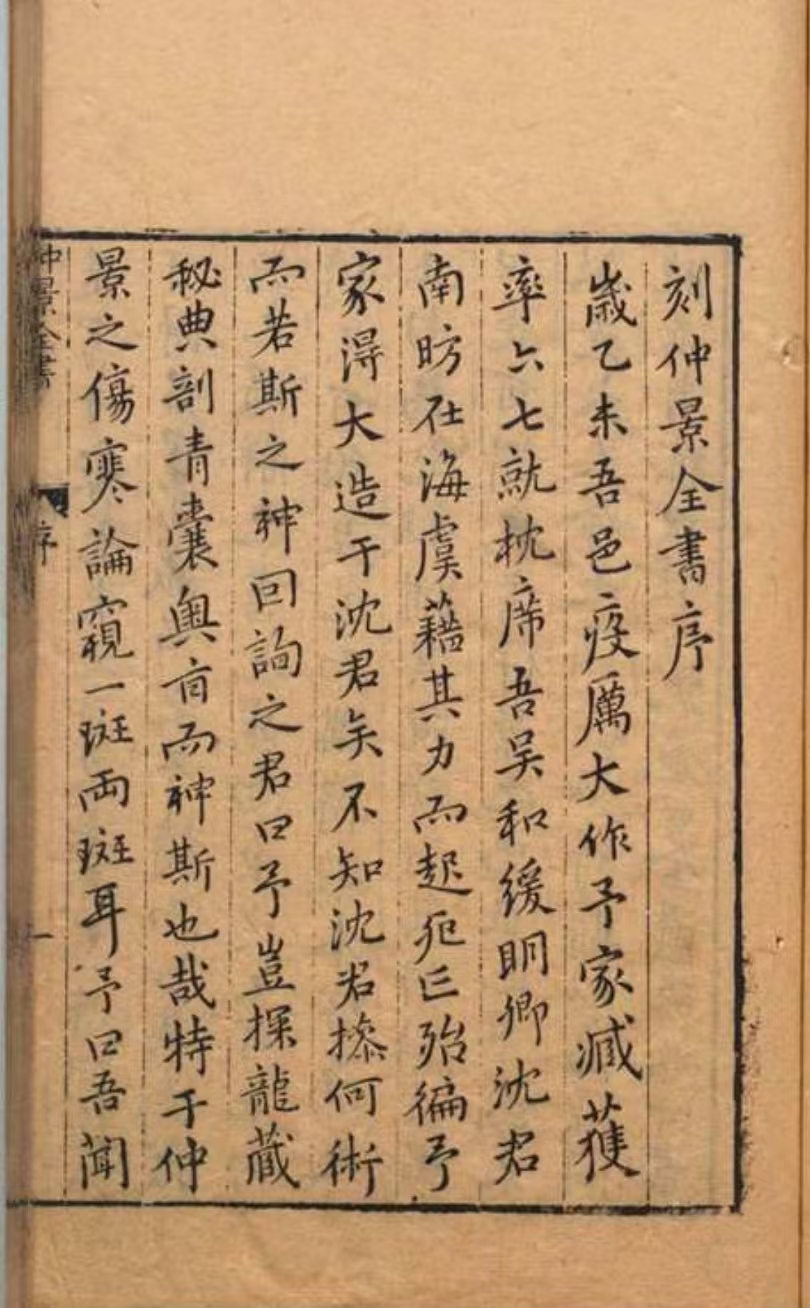 刻仲景全書序
歲乙未吾邑疫厲大作予家臧獲
率六七就枕席吾吴和緩明卿沈君
南昉在海虞藉其力而起死亡殆徧予
家淂大造于沈君矣不知沈君操何術
而若斯之神囘詢之君曰予豈探龍藏
秘典剖青囊奥㫖而神斯也哉特于仲
景之傷寒論窺一斑兩斑耳予曰吾聞
仲景全書
序
一